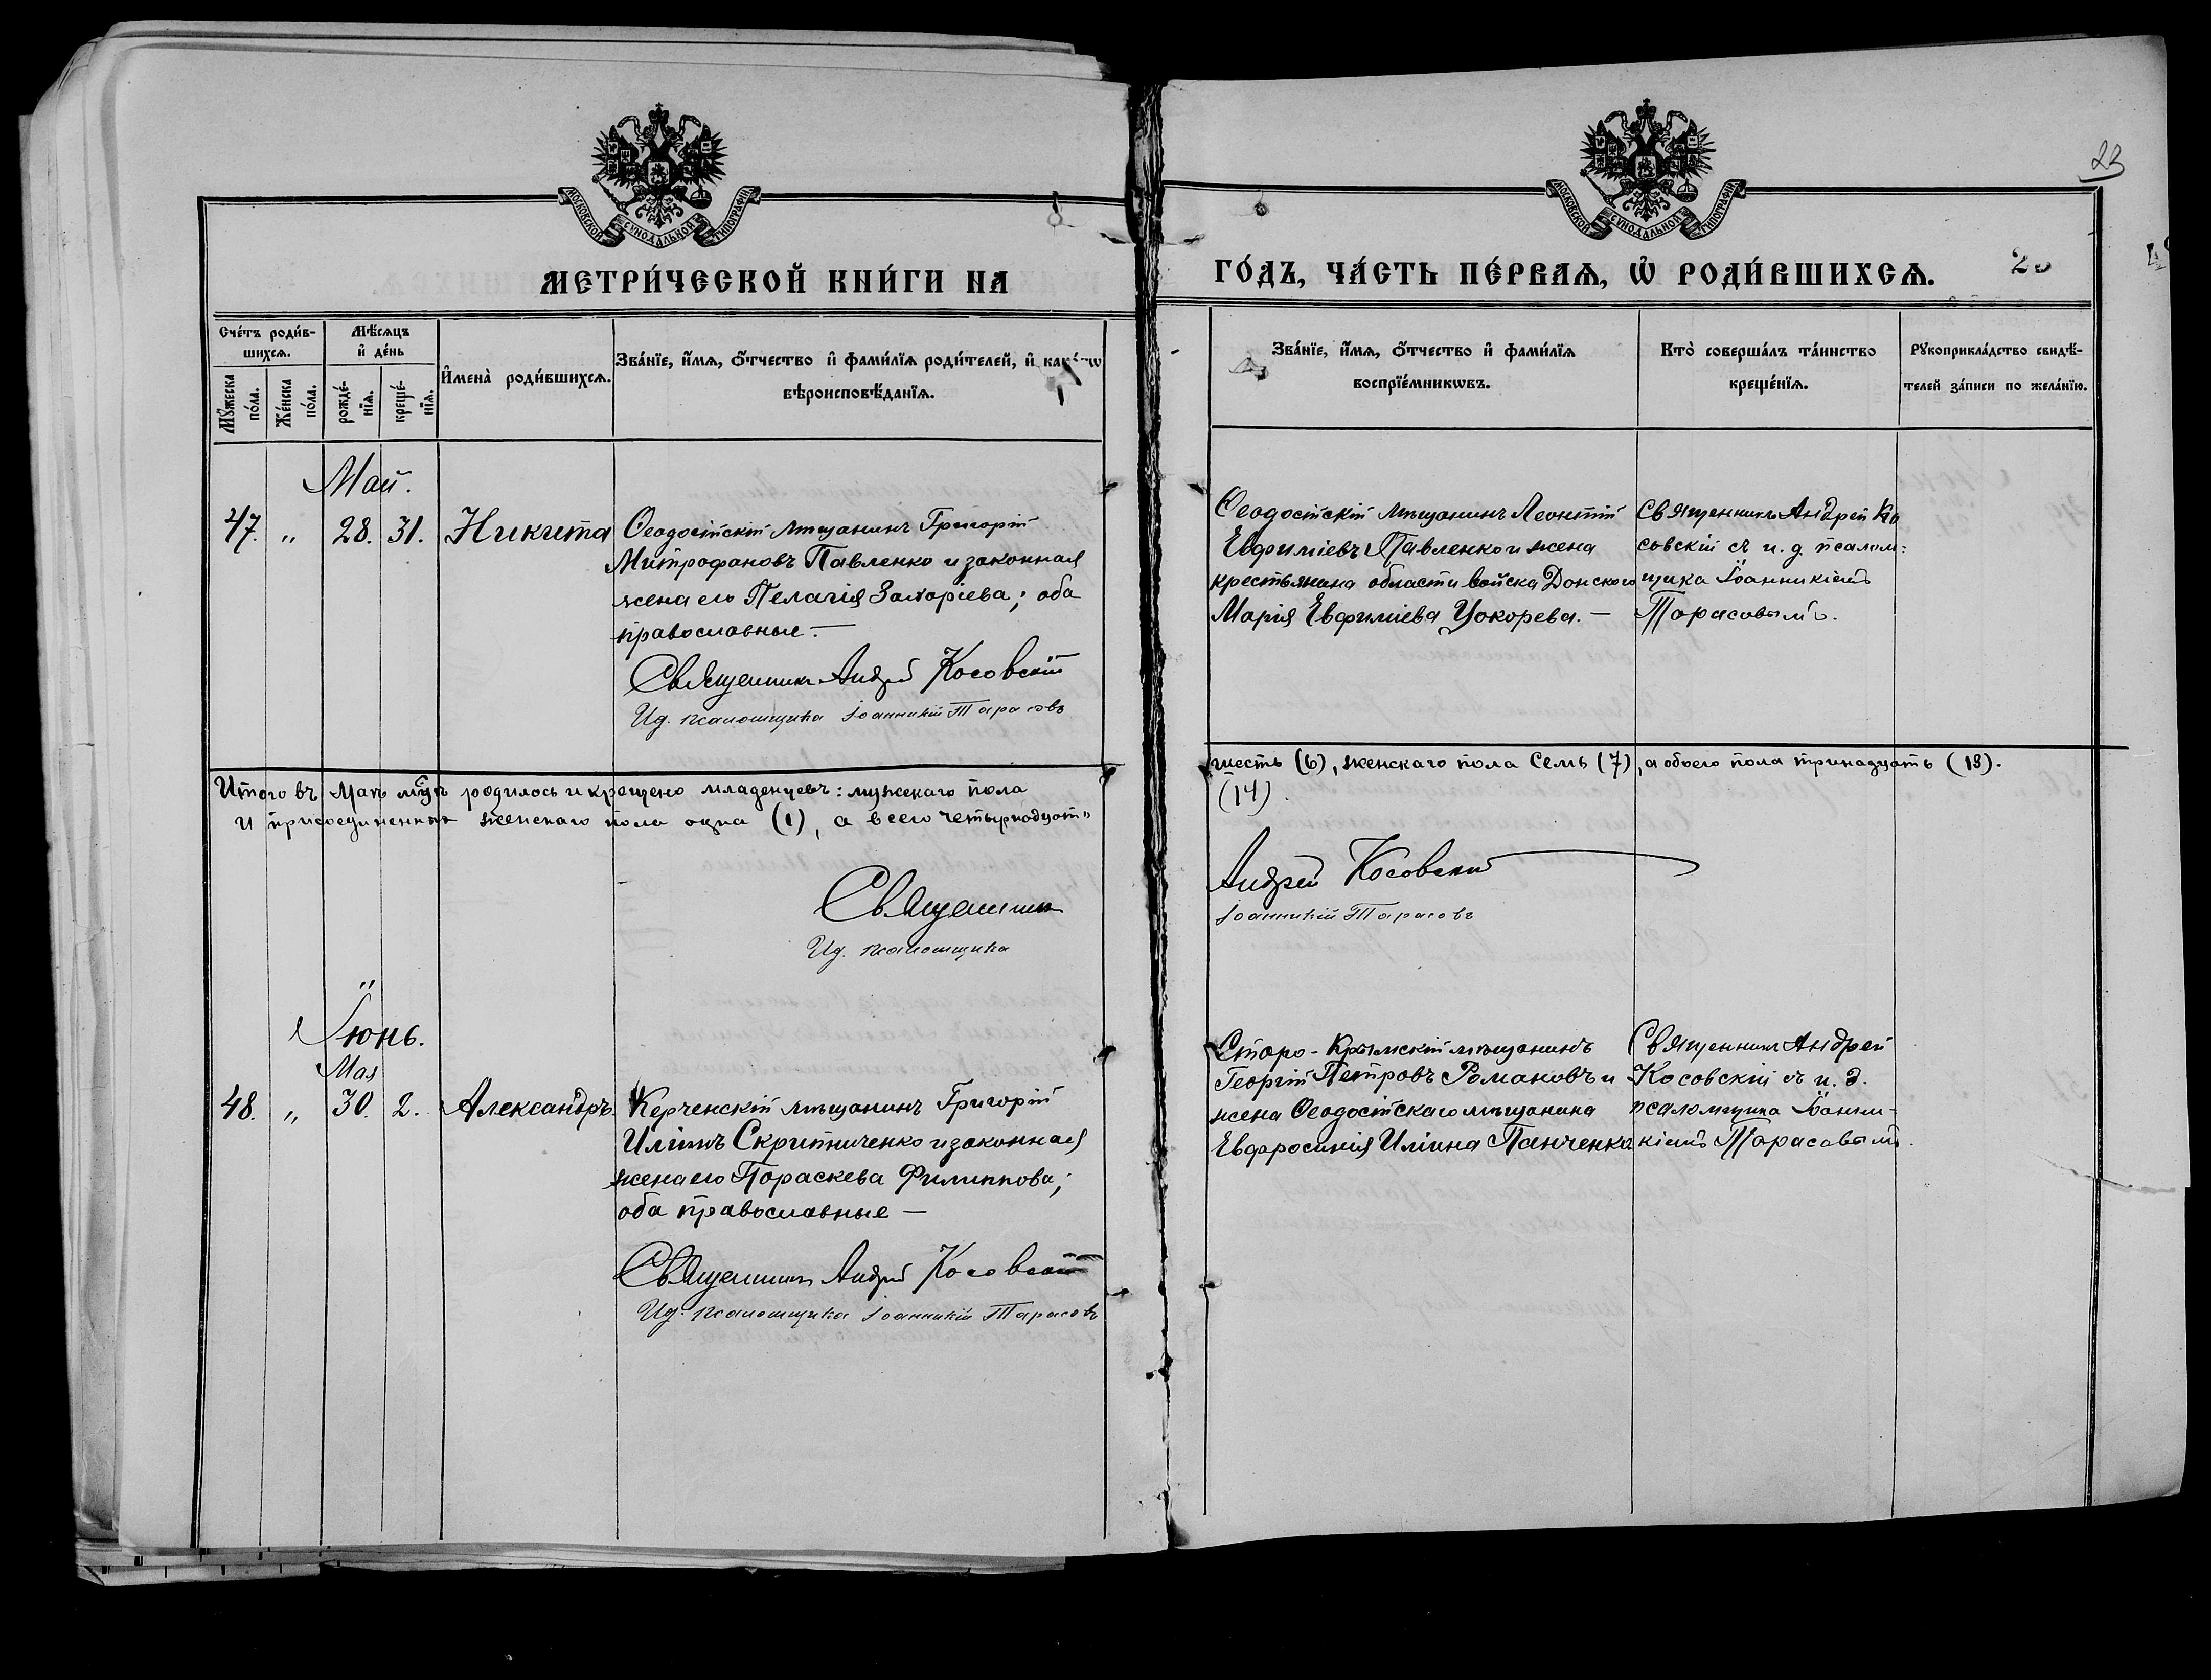 МОСКОВСКОЙ СѴНОДАЛЬНОЙ ТИПОГРАФІИ
МЕТРИ́ЧЕСКОЙ КНИ́ГИ НА
Сче́тъ роди́в-
шихсѧ.
Мꙋ́жеска
по́ла.
Же́нска
по́ла.
Мѣ́сѧцъ
и҆ де́нь
рожде́-
нїѧ.
креще́-
нїѧ.
И҆мена̀ роди́вшихсѧ.
Зва́нїе, и҆́мѧ, ѻ҆́тчество и҆ фами́лїѧ роди́телей, и҆
вѣроисповѣ́данїѧ.
Май.
47. „ 28. 31. Никита
Ѳеодосійскій мѣщанинъ Григорій
Митрофановъ Павленко и законная
жена его Пелагія Захаріева; оба
православные. —
Священникъ Андрей Косовскій
И.д. псаломщика Іоанникій Тарасовъ
Итого въ Маѣ м-цѣ родилось и крещено младенцевъ: мужскаго пола
и присоединенныхъ женскаго пола одна (1), а всего четырнадцать
Священникъ
И.д. псаломщика
Іюнь.
Мая
48. „ 30. 2. Александръ
Керченскій мѣщанинъ Григорій
Иліинъ Скрипниченко и законная
жена его Параскева Филиппова;
оба православные —
Священникъ Андрей Косовскій
И.д. псаломщика Іоанникій Тарасовъ
23
МОСКОВСКОЙ СѴНОДАЛЬНОЙ ТИПОГРАФІИ
ГО́ДЪ, ЧА́СТЬ ПЕ́РВАѦ, Ѡ҆ РОДИ́ВШИХСѦ.
Зва́нїе, и҆́мѧ, ѻ҆́тчество и҆ фами́лїѧ
воспрїе́мникѡвъ.
Кто̀ соверша́лъ та́инство
креще́нїѧ.
Рꙋкоприкла́дство свидѣ́-
телей за́писи по жела́нїю.
Ѳеодосійскій мѣщанинъ Леонтій
Евфиміевъ Павленко и жена
крестьянина области войска Донского
Марія Евфиміева Цокорева. —
Священникъ Андрей Ко
совскій съ и. д. псалом:
щика Іоанникіемъ
Тарасовымъ.
шесть (6), женскаго пола семь (7), а обоего пола тринадцать (13).
(14).
Андрей Косовскій
Іоанникій Тарасовъ
Старо-Крымскій мѣщанинъ
Георгій Петровъ Романовъ и
жена Ѳеодосійскаго мѣщанина
Евфросинія Иліина Панченко
Священникъ Андрей
Косовскій съ и. д.
псаломщика Іоанни-
кіемъ Тарасовымъ.